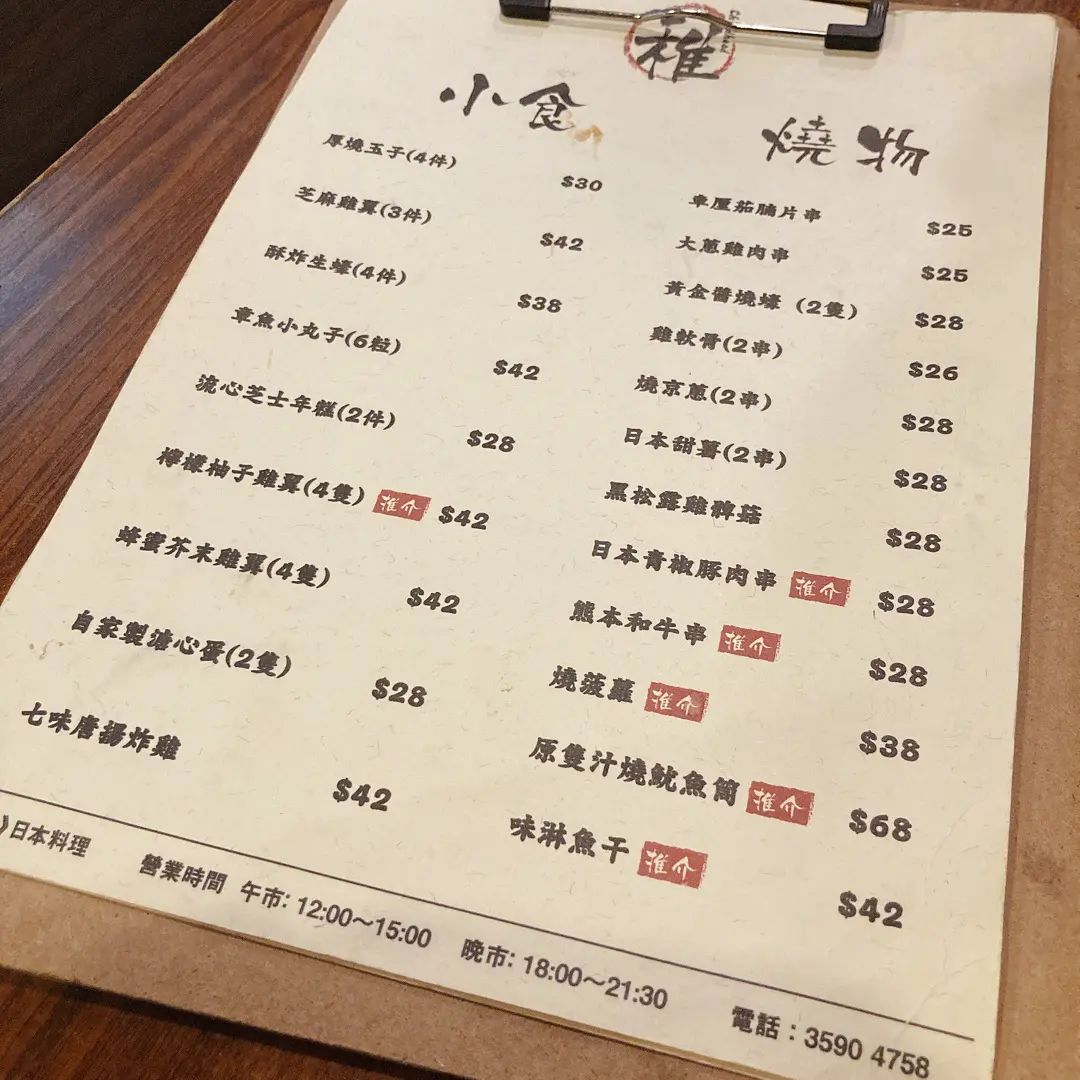 稚
小食
厚燒玉子(4件) $30
芝麻雞翼(3件) $42
酥炸生蠔(4件) $38
章魚小丸子(6粒) $42
流心芝士年糕(2件) $28
檸檬柚子雞翼(4隻) 推介 $42
蜂蜜芥末雞翼(4隻) $42
自家製溏心蛋(2隻) $28
七味唐揚炸雞 $42
燒物
車厘茄腩片串 $25
大蔥雞肉串 $25
黃金醬燒蠔 (2隻) $28
雞軟骨(2串) $26
燒京蔥(2串) $28
日本甜薯(2串) $28
黑松露雞髀菇 $28
日本青椒豚肉串 推介 $28
熊本和牛串 推介 $28
燒菠蘿 推介 $38
原隻汁燒魷魚筒 推介 $68
味淋魚干 推介 $42
》日本料理 營業時間 午市: 12:00～15:00 晚市: 18:00～21:30 電話：3590 4758